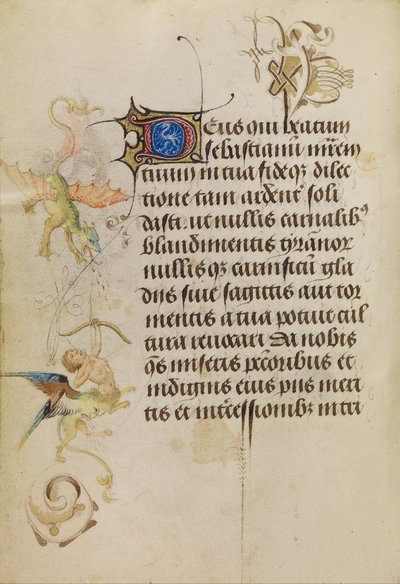 Deus qui beatum
sebastianu mrem
tuum in tua fide qz dilec
tione tam ardent soli
dasti. ut nullis carnalibꝰ
blandimentis tyranoꝝ
nullis qz carnificu gla
diis siue sagittis aut tor
mentis a tua potuit cul
tura reuocari Da nobis
qs miseris pctoribus et
indignis eius piis meri
tis et intcessionibz in tri